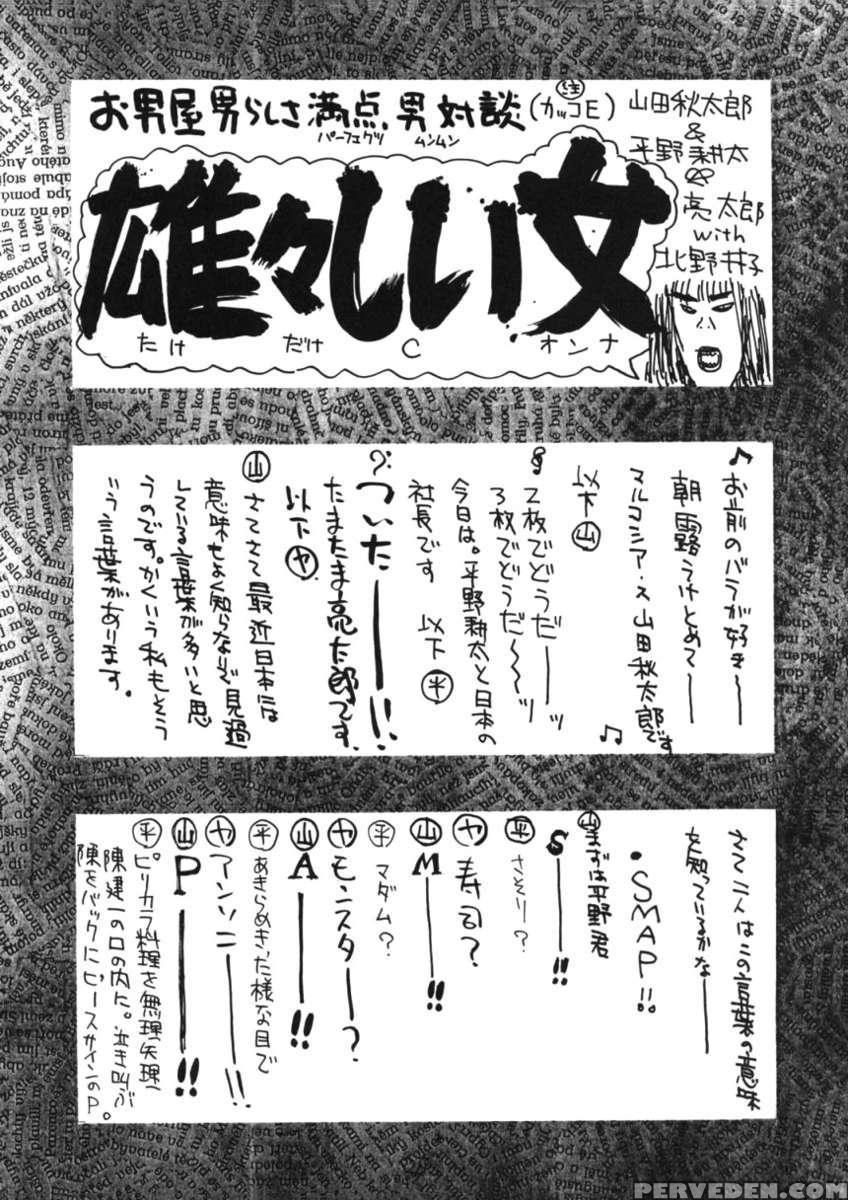 お男屋男らしさ満点、男対談(カッコE)
パーフェクツ ムンムン
山田秋太郎
&
平野耕太
&
亮太郎
with
北野井子
雄々しい女
たけ だけ C オンナ
♪お前のバラが好き〜
朝露うけとめて——
マルコシアース山田秋太郎です♫
以下山
2枚でどうだー〜ッ
3枚でどうだ〜〜ッ
今日は。平野耕太と日本の
社長です 以下平
ついたー——!!
たまたま亮太郎です。
以下ヤ
山さてさて最近日本には
意味もよく知らないで見過
している言葉が多いと思
うのです。かくいう私もそう
いう言葉があります。
さて二人はこの言葉の意味
を知っているかな——
・SMAP!!
山まずは平野君
S——!!
平さそり—?
ヤ寿司?
山M——!!
平マダム?
ヤモンスター?
山A——!!
平あきらめきった様な目で
ヤアンソニー——!!
山P——!!
平ピリカラ料理を無理矢理、
陳建一の口の内に。泣き叫ぶ
陳をバックにピースサインのP。
PERVEDEN.COM